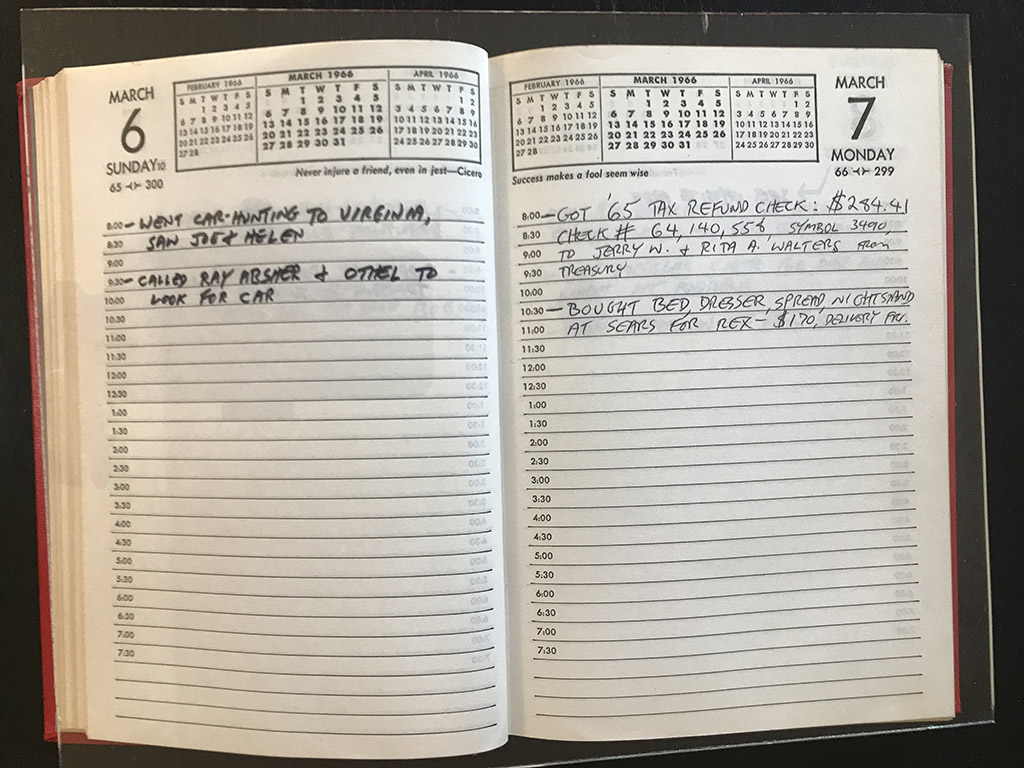 MARCH
6
SUNDAY
65 300
FEBRUARY 1966
S M T W T F S
1 2 3 4 5
6 7 8 9 10 11 12
13 14 15 16 17 18 19
20 21 22 23 24 25 26
27 28
MARCH 1966
S M T W T F S
1 2 3 4 5
6 7 8 9 10 11 12
13 14 15 16 17 18 19
20 21 22 23 24 25 26
27 28 29 30 31
APRIL 1966
S M T W T F S
1 2
3 4 5 6 7 8 9
10 11 12 13 14 15 16
17 18 19 20 21 22 23
24 25 26 27 28 29 30
Never injure a friend, even in jest—Cicero
8:00 — WENT CAR-HUNTING TO VIRGINIA,
8:30 SAN JOE & HELEN
9:00
9:30 — CALLED RAY ABSHER & OTHEL TO
10:00 LOOK FOR CAR
10:30
11:00
11:30
12:00
12:30
1:00
1:30
2:00
2:30
3:00
3:30
4:00
4:30
5:00
5:30
6:00
6:30
7:00
7:30
FEBRUARY 1966
S M T W T F S
1 2 3 4 5
6 7 8 9 10 11 12
13 14 15 16 17 18 19
20 21 22 23 24 25 26
27 28
MARCH 1966
S M T W T F S
1 2 3 4 5
6 7 8 9 10 11 12
13 14 15 16 17 18 19
20 21 22 23 24 25 26
27 28 29 30 31
APRIL 1966
S M T W T F S
1 2
3 4 5 6 7 8 9
10 11 12 13 14 15 16
17 18 19 20 21 22 23
24 25 26 27 28 29 30
MARCH
7
MONDAY
66 299
Success makes a fool seem wise
8:00 — GOT '65 TAX REFUND CHECK: $284.41
8:30 CHECK # 64,140,556 SYMBOL 3490,
9:00 TO JERRY W. & RITA A. WALTERS FROM
9:30 TREASURY
10:00
10:30 — BOUGHT BED, DRESSER, SPREAD, NIGHTSTAND
11:00 AT SEARS FOR REX — $170, DELIVERY FRI.
11:30
12:00
12:30
1:00
1:30
2:00
2:30
3:00
3:30
4:00
4:30
5:00
5:30
6:00
6:30
7:00
7:30